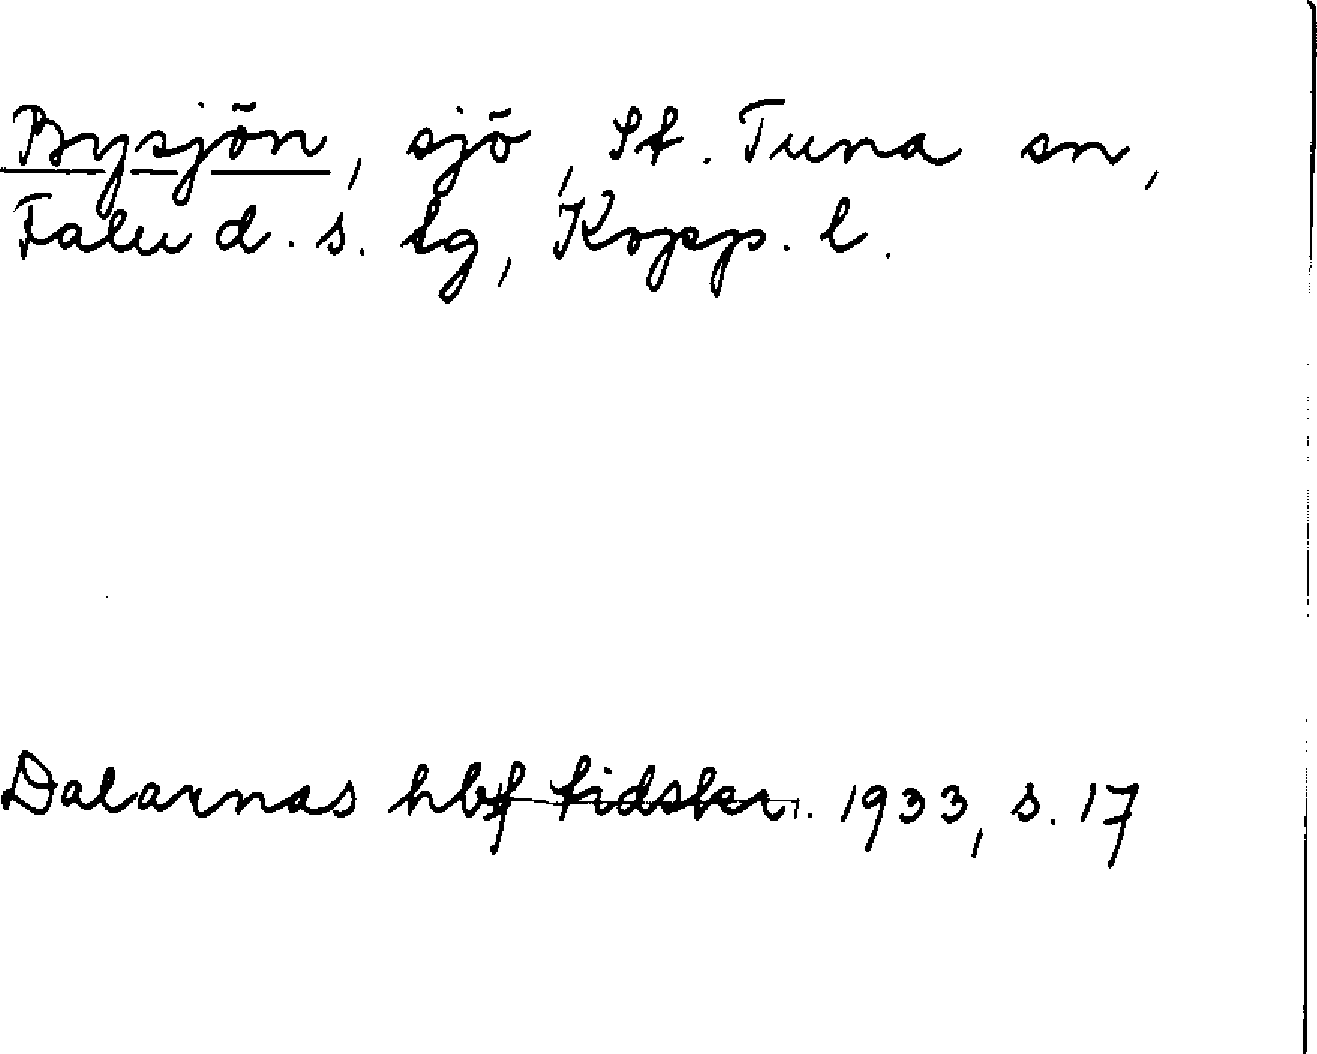 Bysjön, sjö, St. Tuna sn,
Falu d. s. tg, Kopp. l.
Dalarnas hbf tidskr. 1933, s. 17